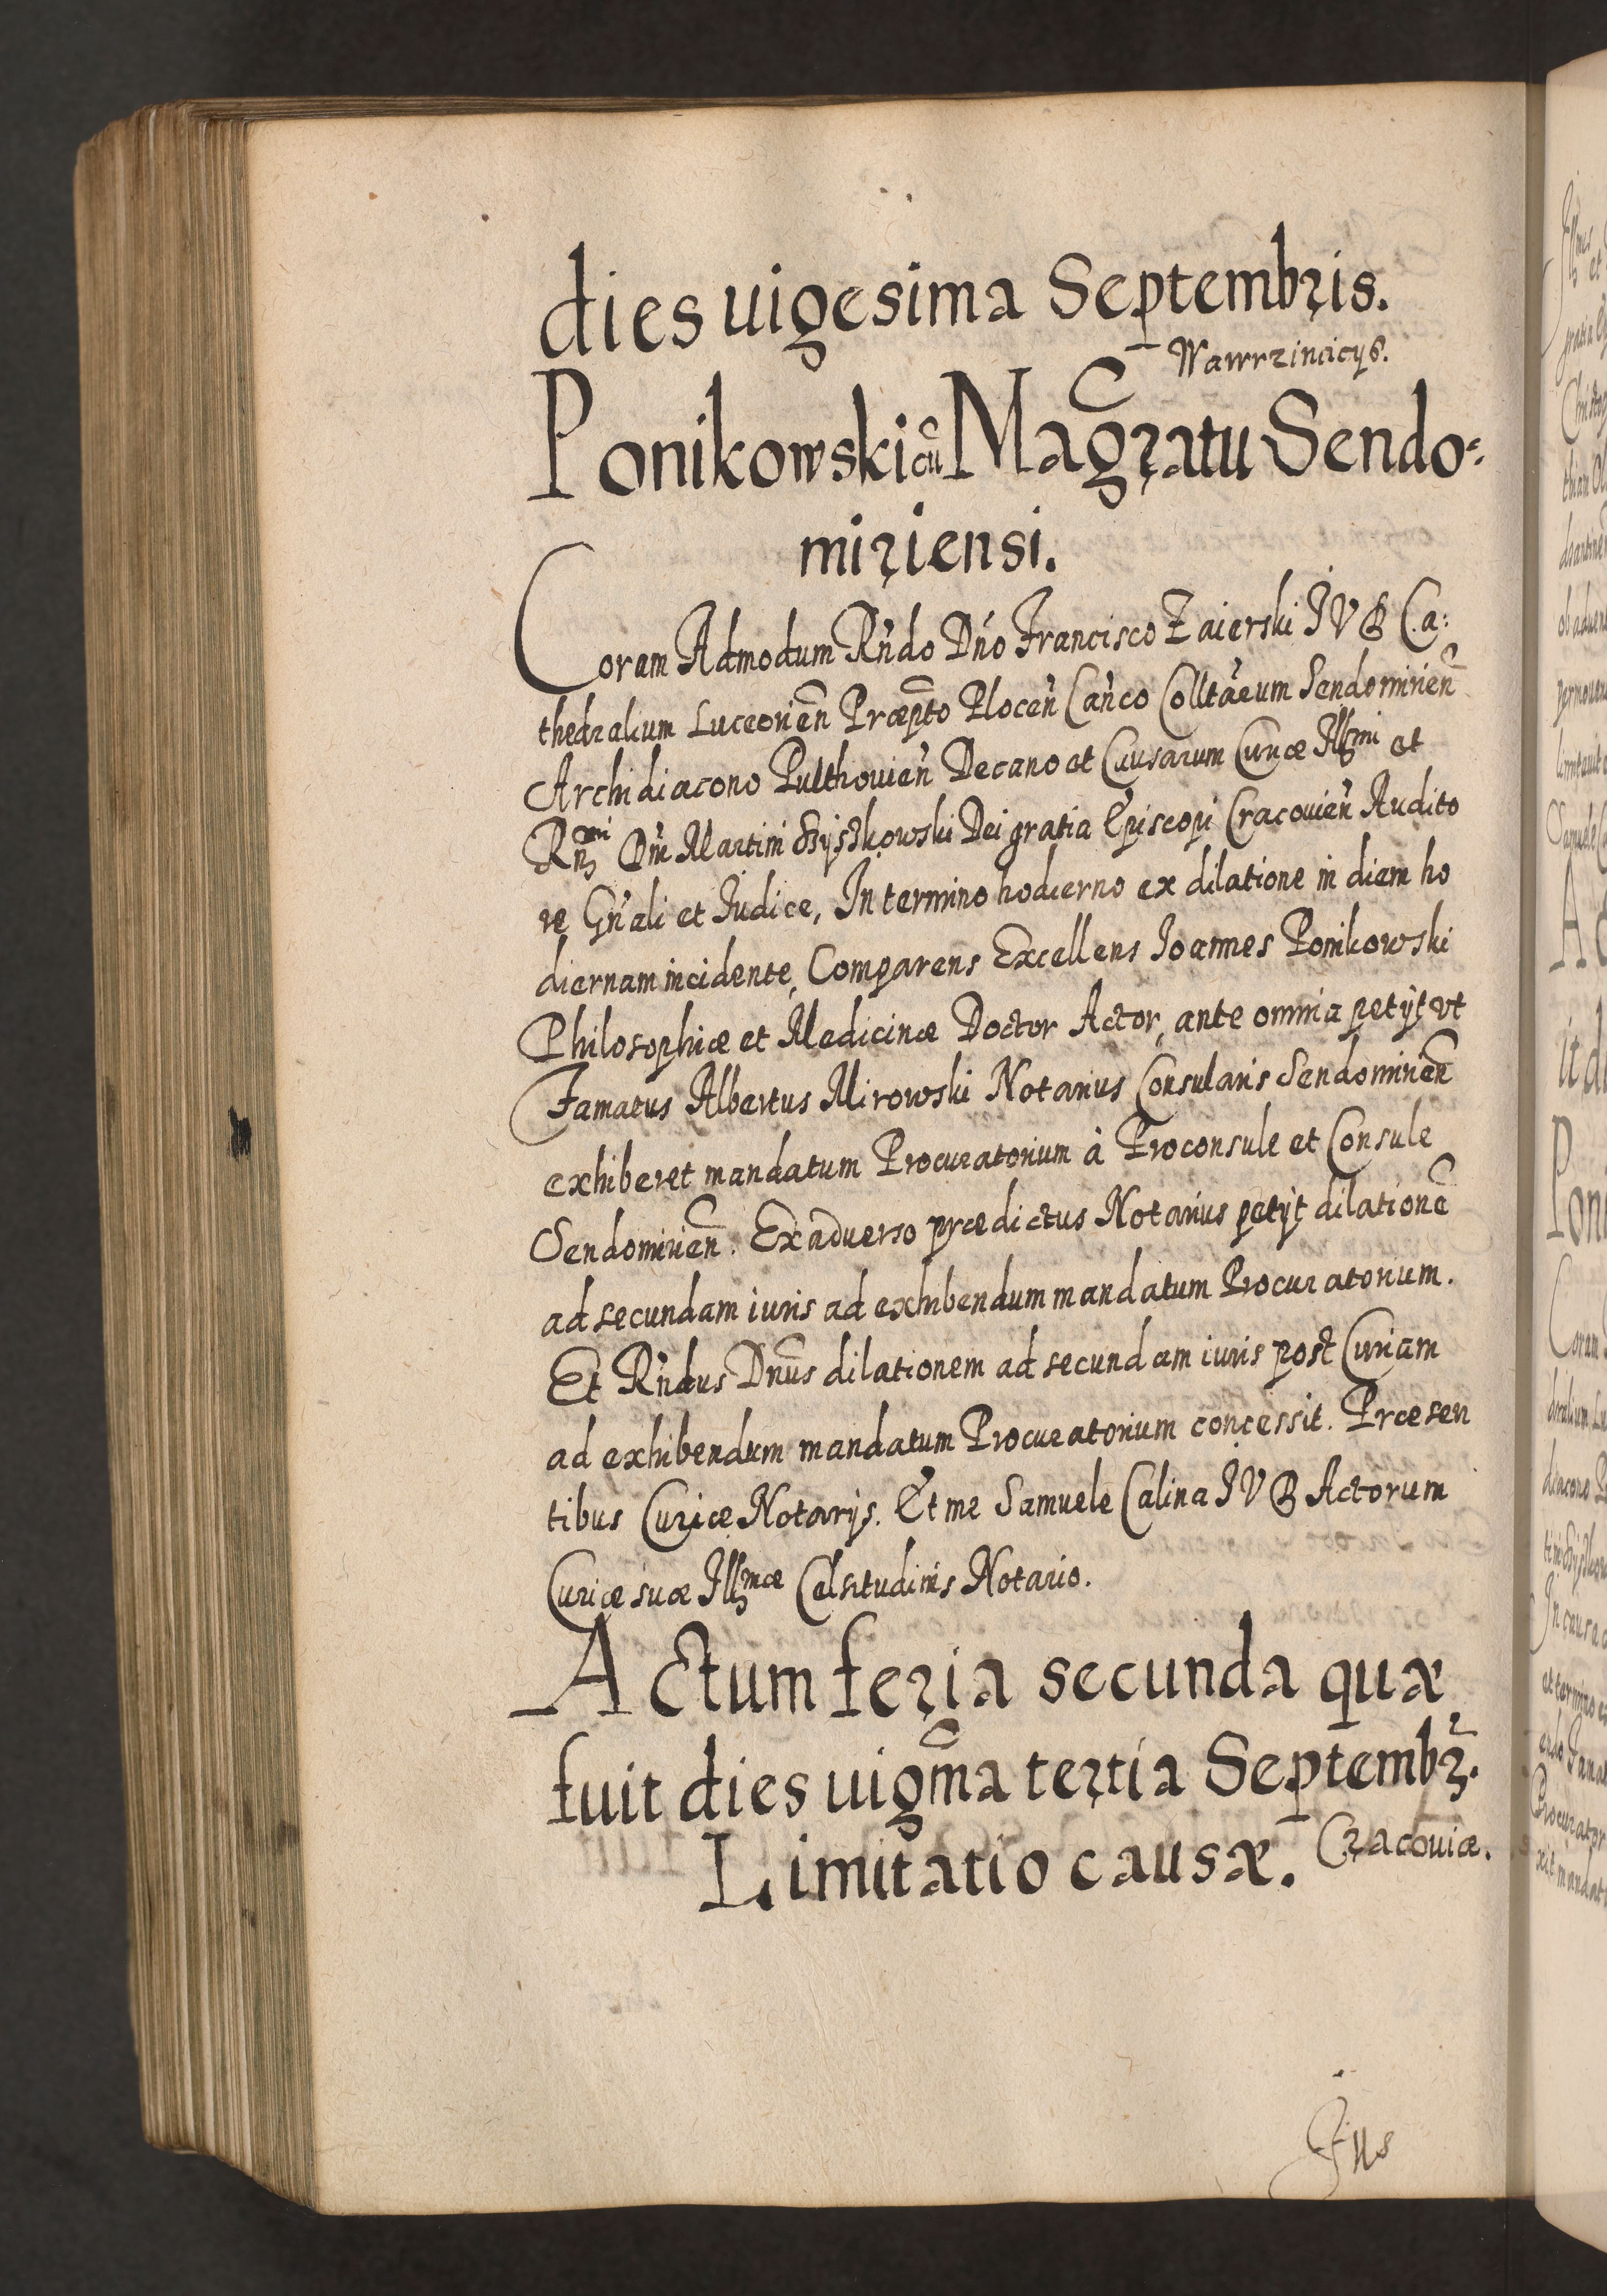 dies uigesima Septembris.
Wawrzincicys.
Ponikowski cũ Magr̃atu Sendo=
miriensi.
Coram Admodum Rñdo Dño Francisco Zaierski I V D Ca:
thedralium Luceorien̄ Præp̄to Plocen̄ Can̄co Colltarum Sendomirien̄
Archidiacono Pulthouien̄ Decano et Causarum Curiæ Illmi et
Rn̄mi Dn̄i Martini Szyszkowski Dei gratia Episcopi Cracouien̄ Audito
re Gn̄ali et Iudice, In termino hodierno ex dilatione in diem ho
diernam incidente, Comparens Excellens Ioannes Ponikowski
Philosophiæ et Medicinæ Doctor Actor, ante omnia petÿt vt
Famatus Albertus Mirowski Notarius Consularis Sendomirien̄
exhiberet mandatum Procuratorium à Proconsule et Consule
Sendomirien̄. Ex aduerso prædictus Notarius petÿt dilationē
ad secundam iuris ad exhibendum mandatum Procuratorium.
Et Rñdus Dnūs dilationem ad secundam iuris post Curiam
ad exhibendum mandatum Procuratorium concessit. Præsen
tibus Curiæ Notarÿs. Et me Samuele Calina I V D Actorum
Curiæ suæ Illmæ Celsitudinis Notario.
Actum feria secunda quæ
fuit dies uigm̄a tertia Septembr̃.
Limitatio causæ. Cracouiæ.